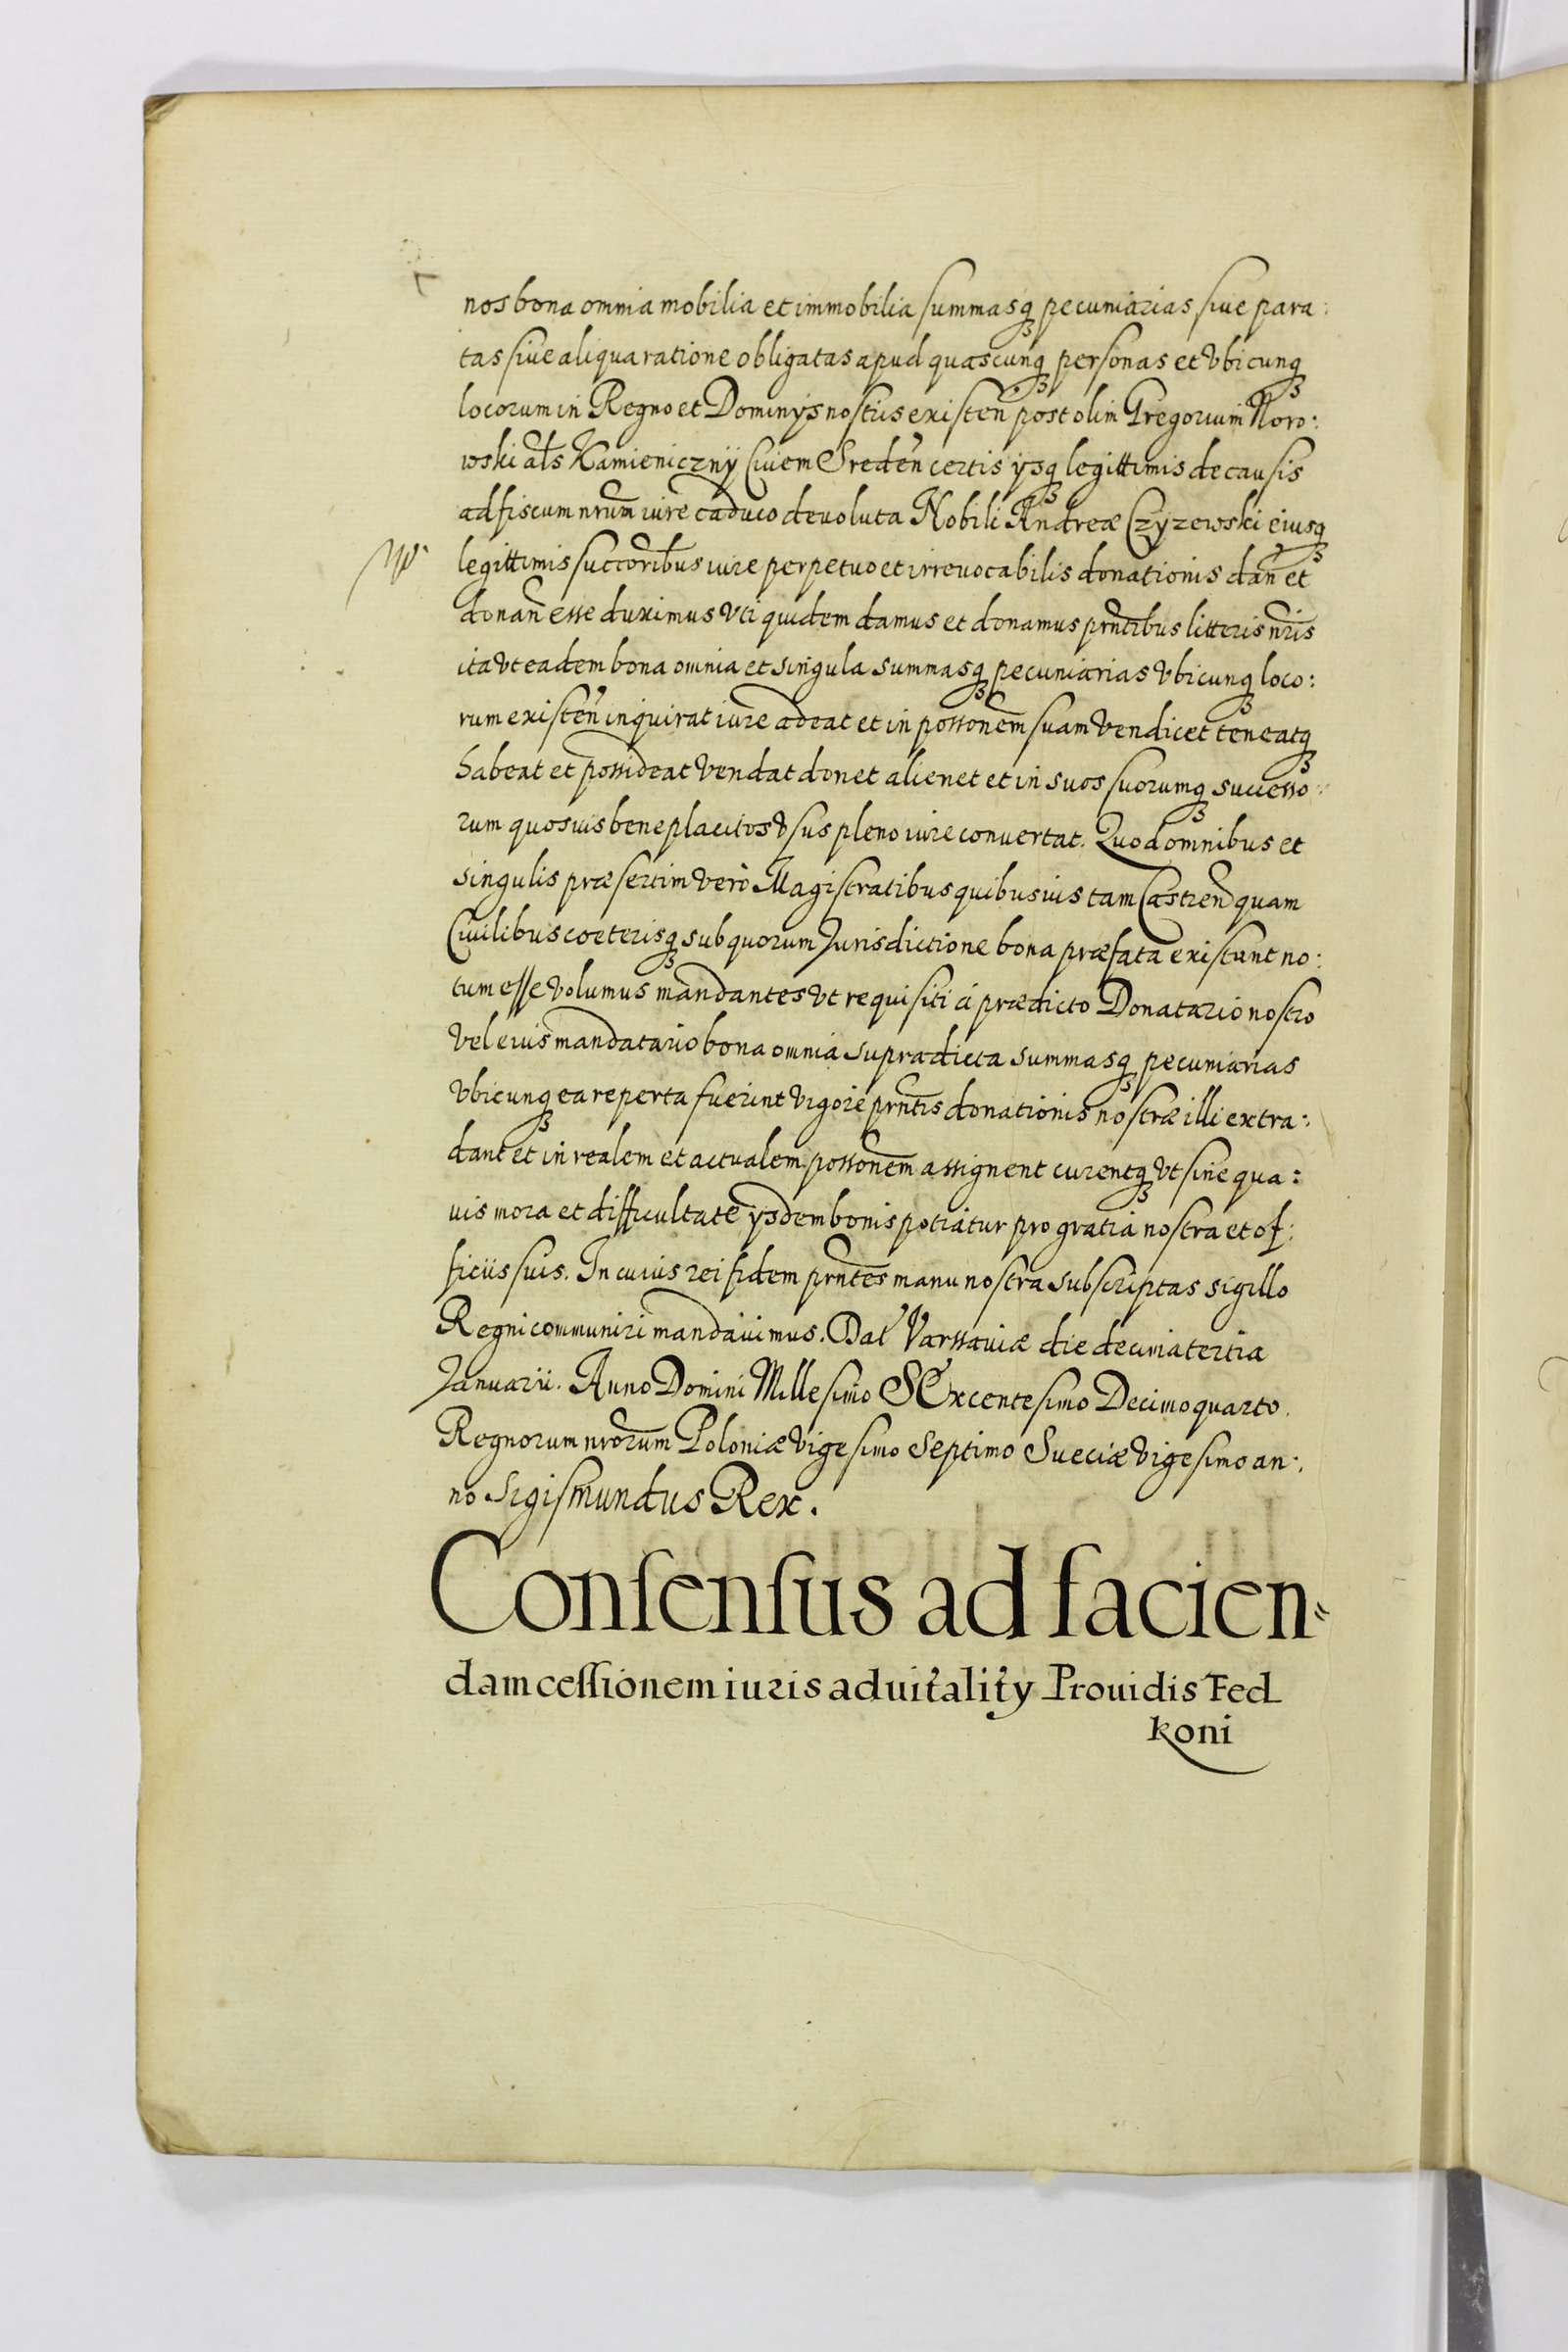 nos bona omnia mobilia et immobilia summasq₃ pecuniarias siue para:
tas siue aliqua ratione obligatas apud quascunq₃ personas et vbicunq₃
locorum in Regno et Dominÿs nostris existen̄ post olim Gregorium Noro:
wski als Kamieniczny Ciuem Sreden̄ certis ÿsq₃ legittimis de causis
ad fiscum nrum iure caduco deuoluta Nobili Andreæ Czyzewski eiusq₃
legittimis succoribus iure perpetuo et irreuocabilis donationis dan̄ et
donan̄ esse duximus vti quidem damus et donamus prntibus litteris nris
ita vt eadem bona omnia et singula summasq₃ pecuniarias vbicunq₃ loco:
rum existen̄ inquirat iure adeat et in possonem suam vendicet teneatq₃
habeat et possideat vendat donet alienet et in suos suorumq₃ successo:
rum quosuis beneplacitos vsus pleno iure conuertat. Quod omnibus et
singulis præsertim verò Magistratibus quibusuis tam Castren̄ quam
Ciuilibus cœterisq₃ sub quorum Jurisdictione bona præfata existunt no:
tum esse volumus mandantes vt requisiti à prædicto Donatario nostro
vel eius mandatario bona omnia supradicta summasq₃ pecuniarias
vbicunq₃ ea reperta fuerint vigore prntis donationis nostræ illi extra:
dant et in realem et actualem possonem assignent curentq₃ vt sine qua:
uis mora et difficultate ÿsdem bonis potiatur pro gratia nostra et of:
ficiis suis. In cuius rei fidem prntes manu nostra subscriptas sigillo
Regni communiri mandauimus. Dat Varssauiæ die decima tertia
Januarii. Anno Domini Millesimo SExcentesimo Decimo quarto.
Regnorum nrorum Poloniæ vigesimo septimo Sueciæ vigesimo an:
no Sigismundus Rex.
Consensus ad facien=
dam cessionem iuris aduitality Prouidis Fed
koni